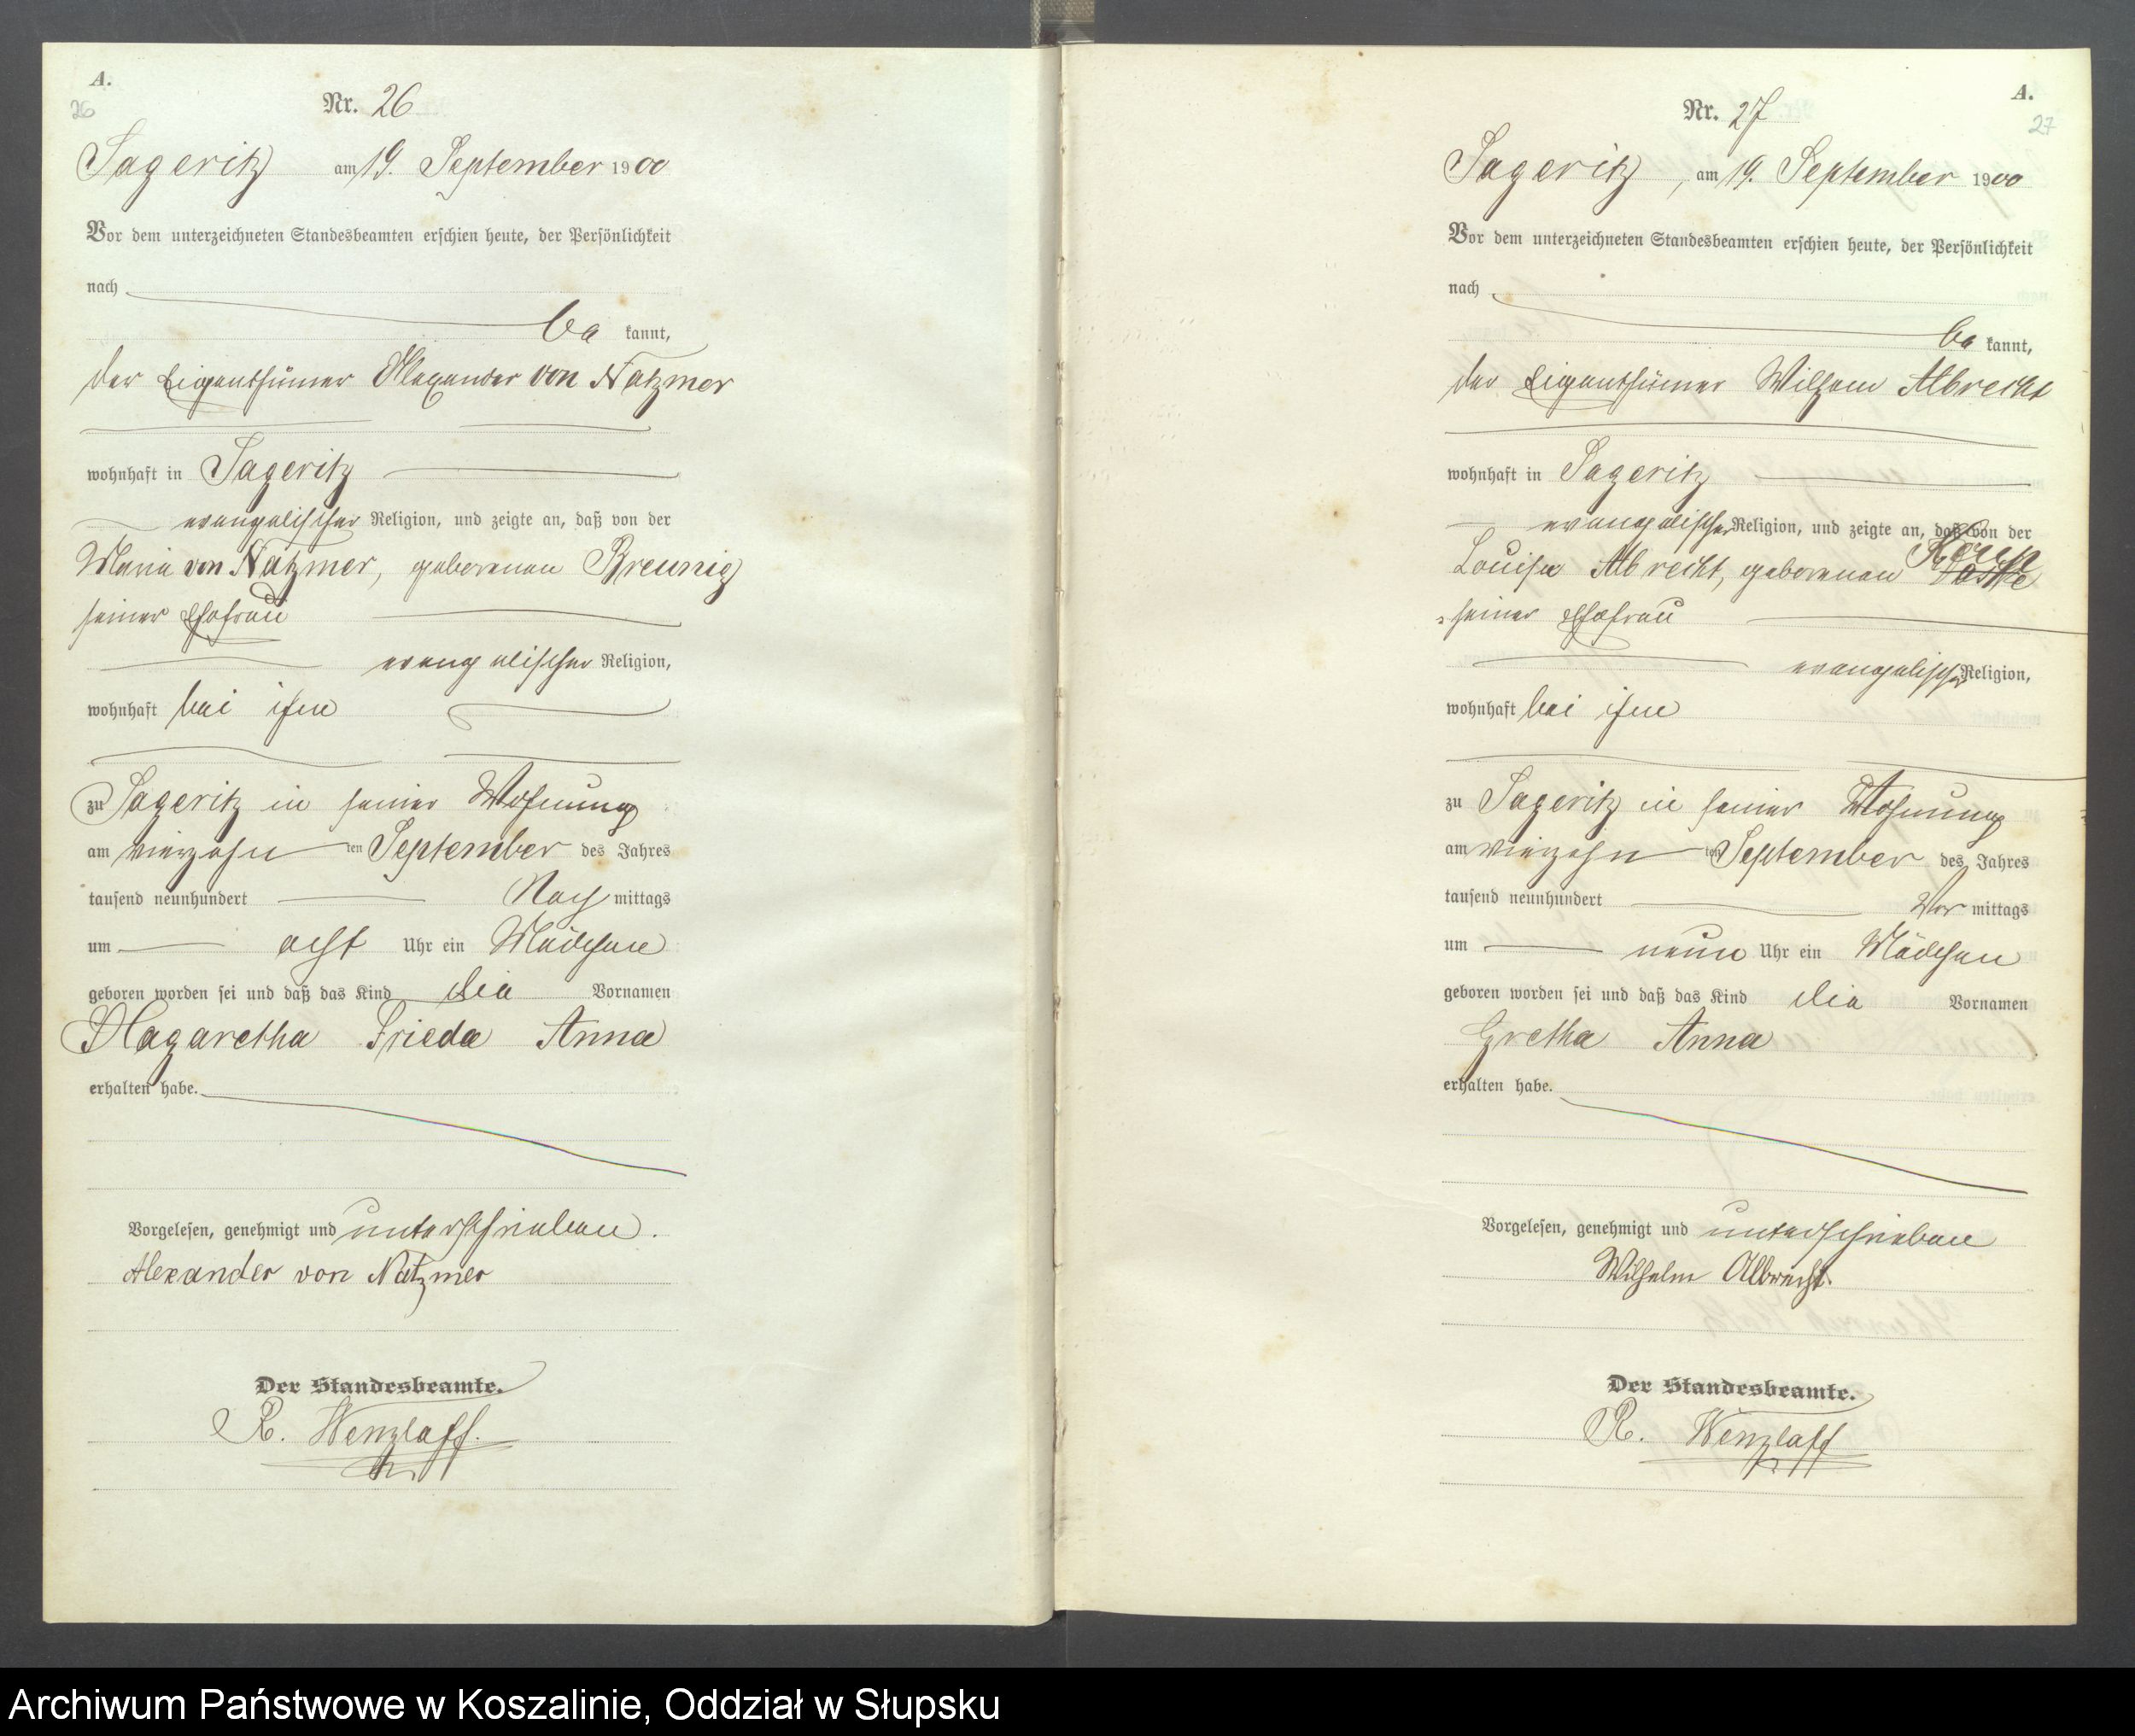 A.
26
Nr. 26
Sageritz am 19. September 1900
Vor dem unterzeichneten Standesbeamten erschien heute, der Persönlichkeit
nach
be kannt,
der Eigenthümer Alexander von Natzmer
wohnhaft in Sageritz
evangelischer Religion, und zeigte an, daß von der
Maria von Natzmer, geborenen Breunig
seiner Ehefrau
evangelischer Religion,
wohnhaft bei ihm
zu Sageritz in seiner Wohnung
am vierzehn ten September des Jahres
tausend neunhundert Nach mittags
um acht Uhr ein Mädchen
geboren worden sei und daß das Kind die Vornamen
Magaretha Frieda Anna
erhalten habe.
Vorgelesen, genehmigt und unterschrieben.
Alexander von Natzmer
Der Standesbeamte.
R. Wenzlaff.
A.
27
Nr. 27
Sageritz, am 19. September 1900
Vor dem unterzeichneten Standesbeamten erschien heute, der Persönlichkeit
nach
be kannt,
der Eigenthümer Wilhem Albrecht
wohnhaft in Sageritz
evangelischer Religion, und zeigte an, daß von der
Louise Albrecht, geborenen
seiner Ehefrau
evangelischer Religion,
wohnhaft bei ihm
zu Sageritz in seiner Wohnung
am vierzehn ten September des Jahres
tausend neunhundert Vor mittags
um neun Uhr ein Mädchen
geboren worden sei und daß das Kind die Vornamen
Gretha Anna
erhalten habe.
Vorgelesen, genehmigt und unterschrieben
Wilhelm Albrecht.
Der Standesbeamte.
R. Wenzlaff
Archiwum Państwowe w Koszalinie, Oddział w Słupsku